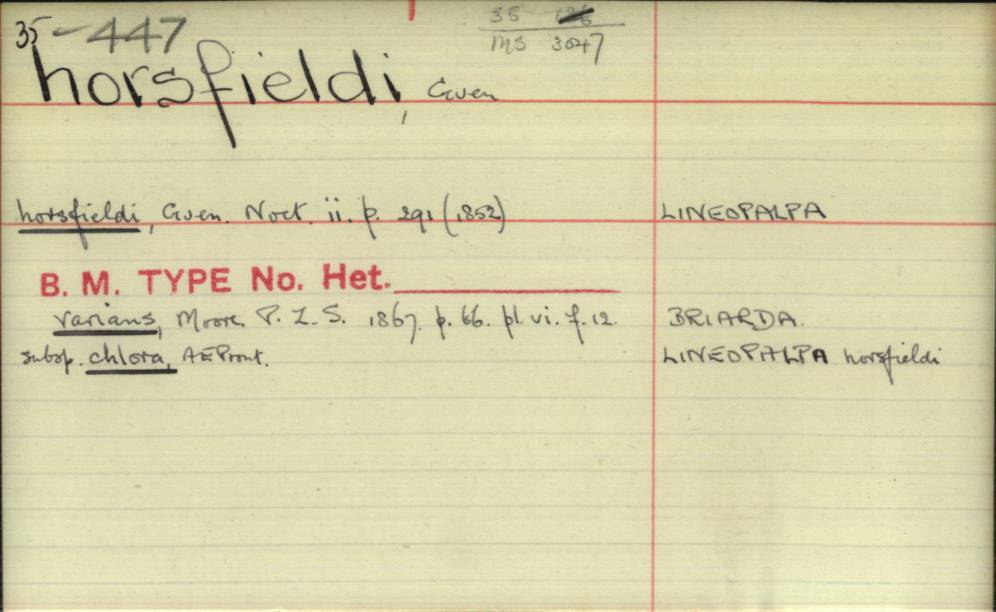 35-447
35
MS 3047
horsfieldi, Guen
horsfieldi, Guen. Noct. ii. p. 291 (1852) LINEOPALPA
B. M. TYPE No. Het.
varians, Moore. P. Z. S. 1867. p. 66. pl. vi. f. 12. BRIARDA.
subsp. chlora, AEProut. LINEOPALPA horsfieldi